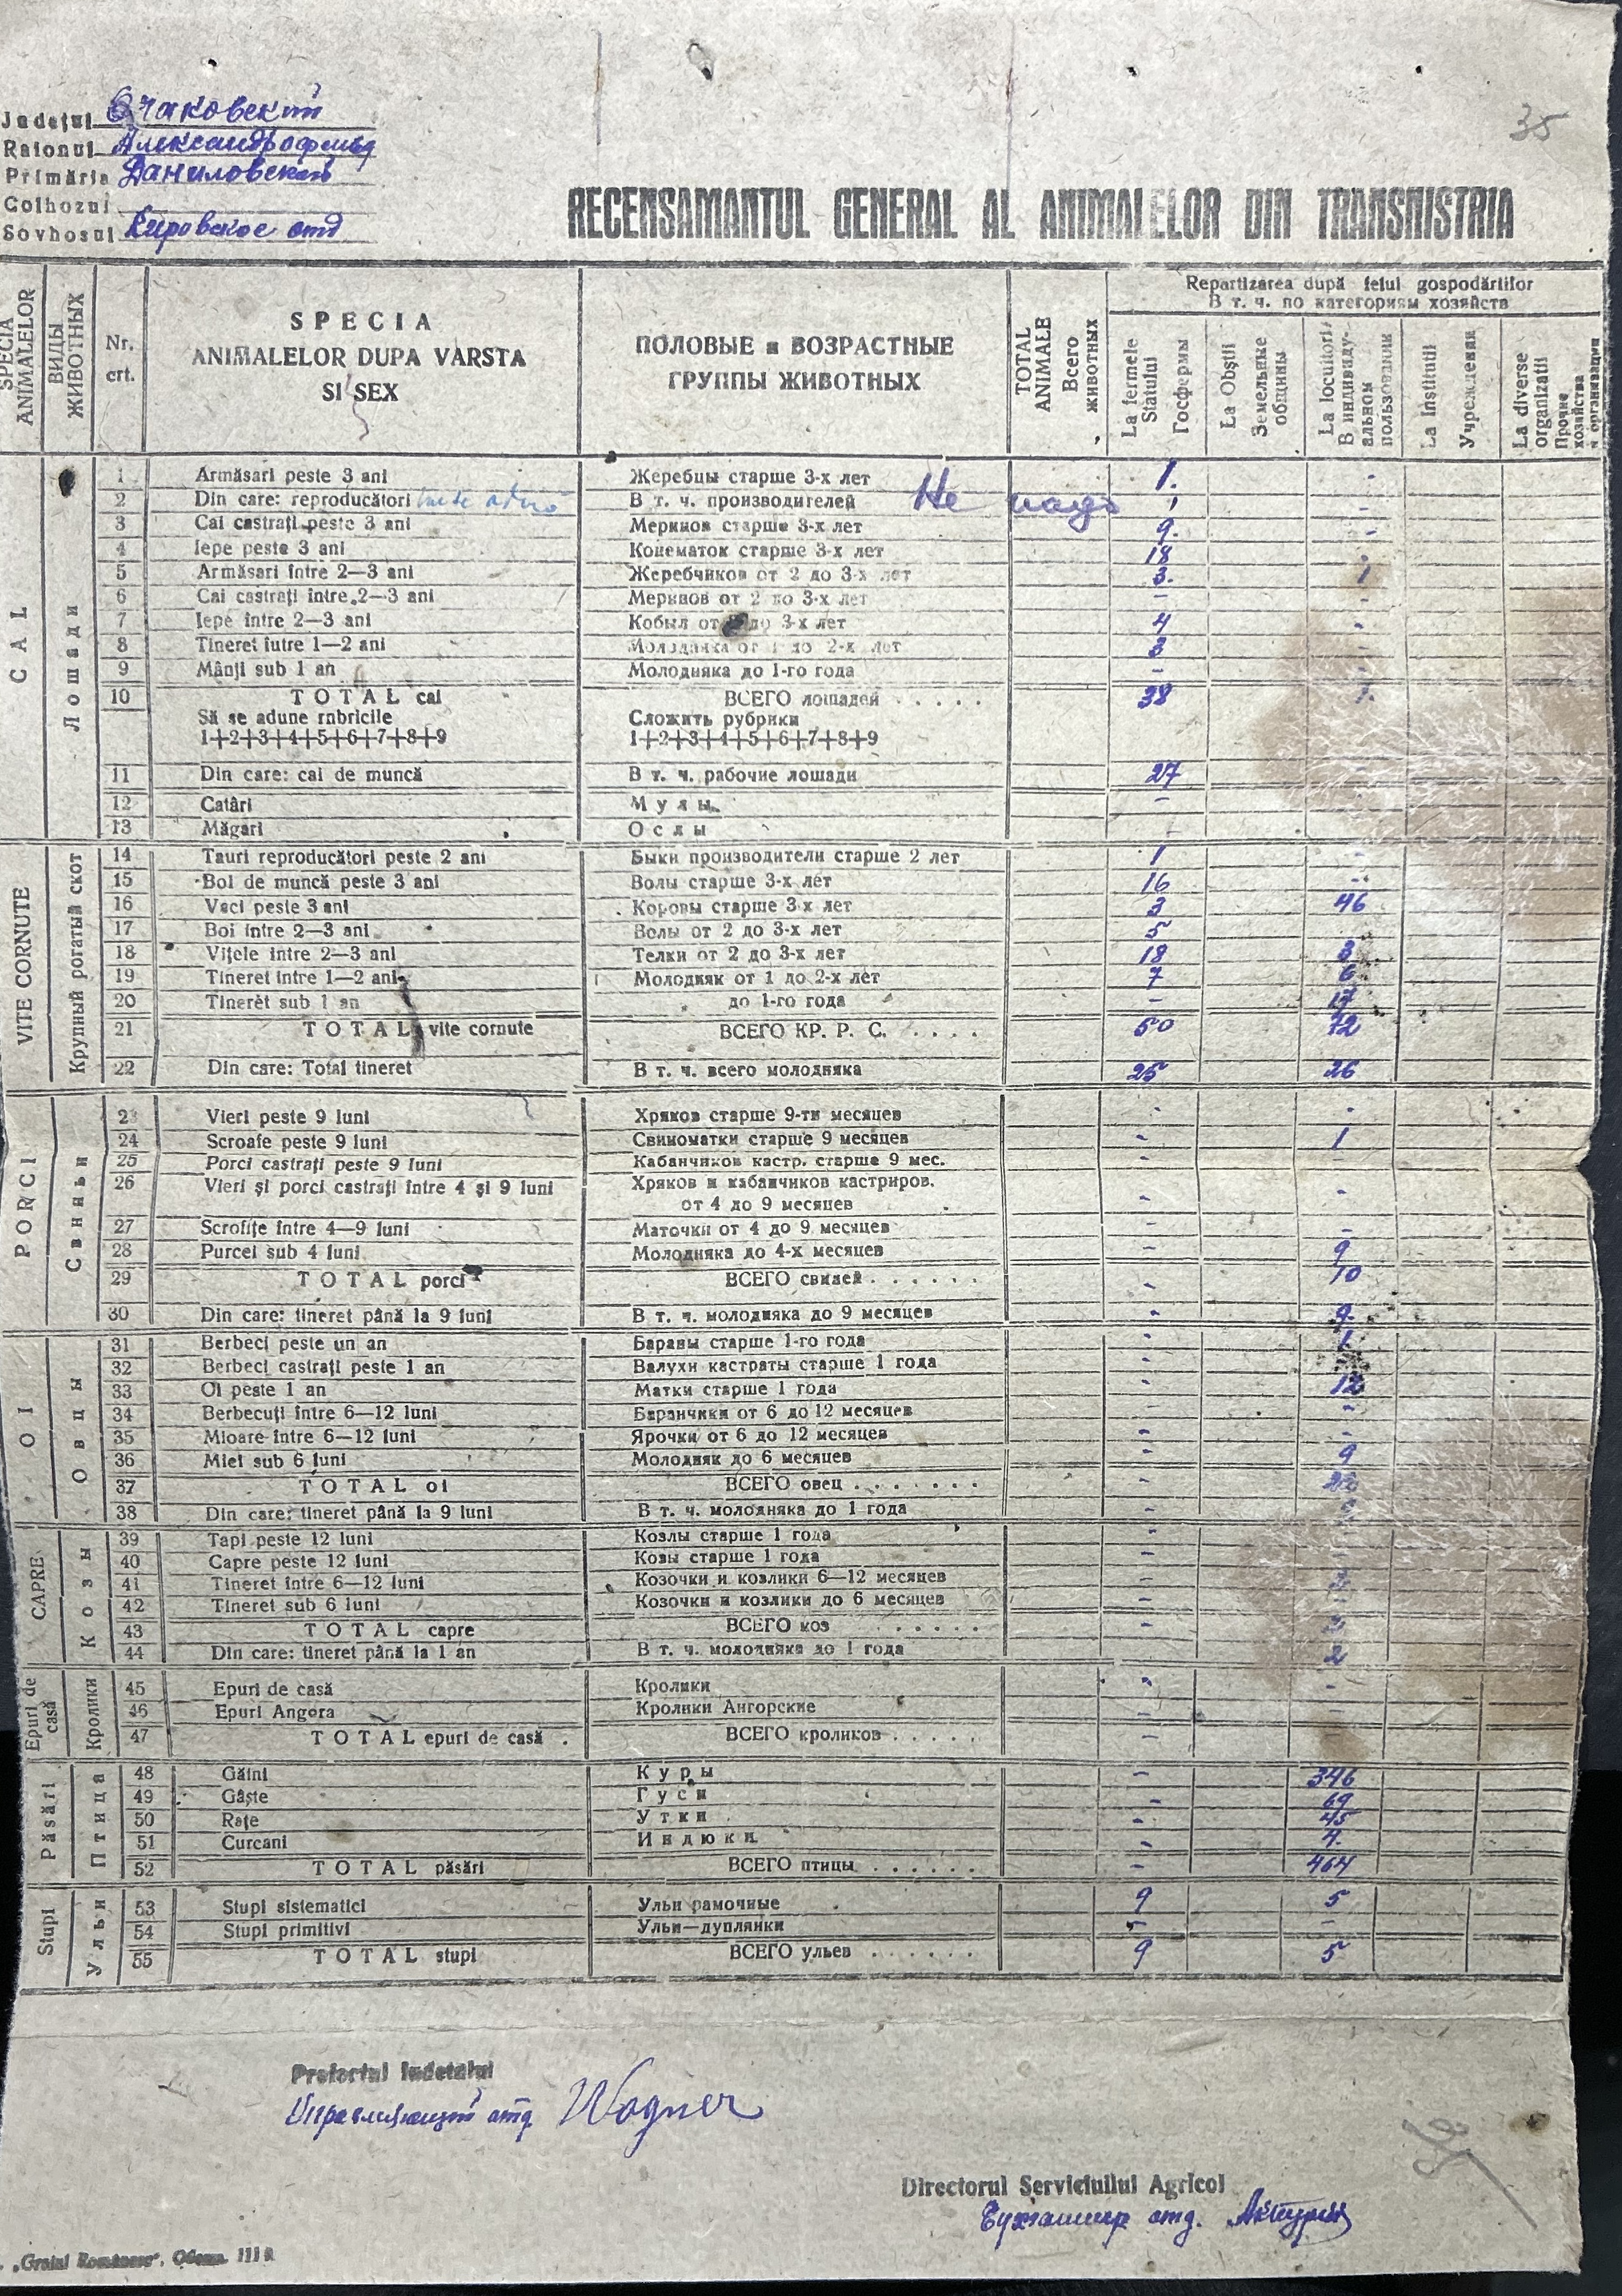 35
Județul Очаковский
Raionul Александрофельд
Primăria Даниловский
Colhozul
Sovhosul Кировское отд
RECENSAMANTUL GENERAL AL ANIMALELOR DIN TRANSNISTRIA
SPECIA ANIMALELOR
ВИДЫ ЖИВОТНЫХ
Nr. crt.
SPECIA ANIMALELOR DUPA VARSTA SI SEX
ПОЛОВЫЕ и ВОЗРАСТНЫЕ ГРУППЫ ЖИВОТНЫХ
TOTAL ANIMALE Всего животных
Repartizarea după felul gospodăriilor
В т. ч. по категориям хозяйств
La fermele Statului Госфермы
La Obștii Земельные общины
La locuitori В индивидуальном пользовании
La Institutii Учреждения
La diverse organizatii Прочие хозяйства и организации
CAL Лошади
1 Armăsari peste 3 ani Жеребцы старше 3-х лет 1. -
2 Din care: reproducători В т. ч. производителей Не надо
3 Cai castrați peste 3 ani Меринов старше 3-х лет 9. -
4 Iepe peste 3 ani Конематок старше 3-х лет 18
5 Armăsari între 2—3 ani Жеребчиков от 2 до 3-х лет 3.
6 Cai castrați între 2—3 ani Меринов от 2 до 3-х лет
7 Iepe între 2—3 ani Кобыл от до 3-х лет 4 -
8 Tineret iutre 1—2 ani Молодняка от 1 до 2-х лет 3
9 Mânji sub 1 an Молодняка до 1-го года -
10 TOTAL cai ВСЕГО лошадей . . . . . 38
Să se adune rnbricile Сложить рубрики
1+2+3+4+5+6+7+8+9 1+2+3+4+5+6+7+8+9
11 Din care: cai de muncă В т. ч. рабочие лошади 27
12 Catâri Мулы -
13 Măgari Ослы
VITE CORNUTE Крупный рогатый скот
14 Tauri reproducători peste 2 ani Быки производители старше 2 лет 1 -
15 Boi de muncă peste 3 ani Волы старше 3-х лет 16 -
16 Vaci peste 3 ani Коровы старше 3-х лет 3 46
17 Boi între 2—3 ani Волы от 2 до 3-х лет 5
18 Vițele între 2—3 ani Телки от 2 до 3-х лет 18 3
19 Tineret între 1—2 ani Молодняк от 1 до 2-х лет 7 6
20 Tineret sub 1 an до 1-го года - 17
21 TOTAL vite cornute ВСЕГО КР. Р. С. . . . . 50 72
22 Din care: Total tineret В т. ч. всего молодняка 25 26
PORCI Свиньи
23 Vieri peste 9 luni Хряков старше 9-ти месяцев - -
24 Scroafe peste 9 luni Свиноматки старше 9 месяцев - 1
25 Porci castrați peste 9 luni Кабанчиков кастр. старше 9 мес. -
26 Vieri și porci castrați între 4 și 9 luni Хряков и кабанчиков кастриров.
от 4 до 9 месяцев - -
27 Scrofițe între 4—9 luni Маточки от 4 до 9 месяцев - -
28 Purcei sub 4 luni Молодняка до 4-х месяцев - 9
29 TOTAL porci ВСЕГО свиней . . . . . . - 10
30 Din care: tineret până la 9 luni В т. ч. молодняка до 9 месяцев - 9.
OI Овцы
31 Berbeci peste un an Бараны старше 1-го года - 1
32 Berbeci castrați peste 1 an Валухи кастраты старше 1 года -
33 Oi peste 1 an Матки старше 1 года - 12
34 Berbecuți între 6—12 luni Баранчики от 6 до 12 месяцев - -
35 Mioare între 6—12 luni Ярочки от 6 до 12 месяцев - -
36 Miei sub 6 luni Молодняк до 6 месяцев - 9
37 TOTAL oi ВСЕГО овец . . . . . . . - 22
38 Din care: tineret până la 9 luni В т. ч. молодняка до 1 года -
CAPRE Козы
39 Tapi peste 12 luni Козлы старше 1 года -
40 Capre peste 12 luni Козы старше 1 года -
41 Tineret între 6—12 luni Козочки и козлики 6—12 месяцев -
42 Tineret sub 6 luni Козочки и козлики до 6 месяцев -
43 TOTAL capre ВСЕГО коз . . . . . -
44 Din care: tineret până la 1 an В т. ч. молодняка до 1 года - 2
Epuri de casă Кролики
45 Epuri de casă Кролики - -
46 Epuri Angora Кролики Ангорские -
47 TOTAL epuri de casă . ВСЕГО кроликов . . . . . -
Păsări Птица
48 Găini Куры - 346
49 Gâște Гуси - 69
50 Rațe Утки - 45
51 Curcani Индюки - 4.
52 TOTAL păsări ВСЕГО птицы . . . . . . - 464
Stupi Ульи
53 Stupi sistematici Ульи рамочные 9 5
54 Stupi primitivi Ульи—дуплянки - -
55 TOTAL stupi ВСЕГО ульев . . . . . . 9 5
Prefectul Iudetului
Управляющий отд Wagner
Directorul Serviciuilul Agricol
Бухгалтер отд.
„Graiul Românesc“, Одесса